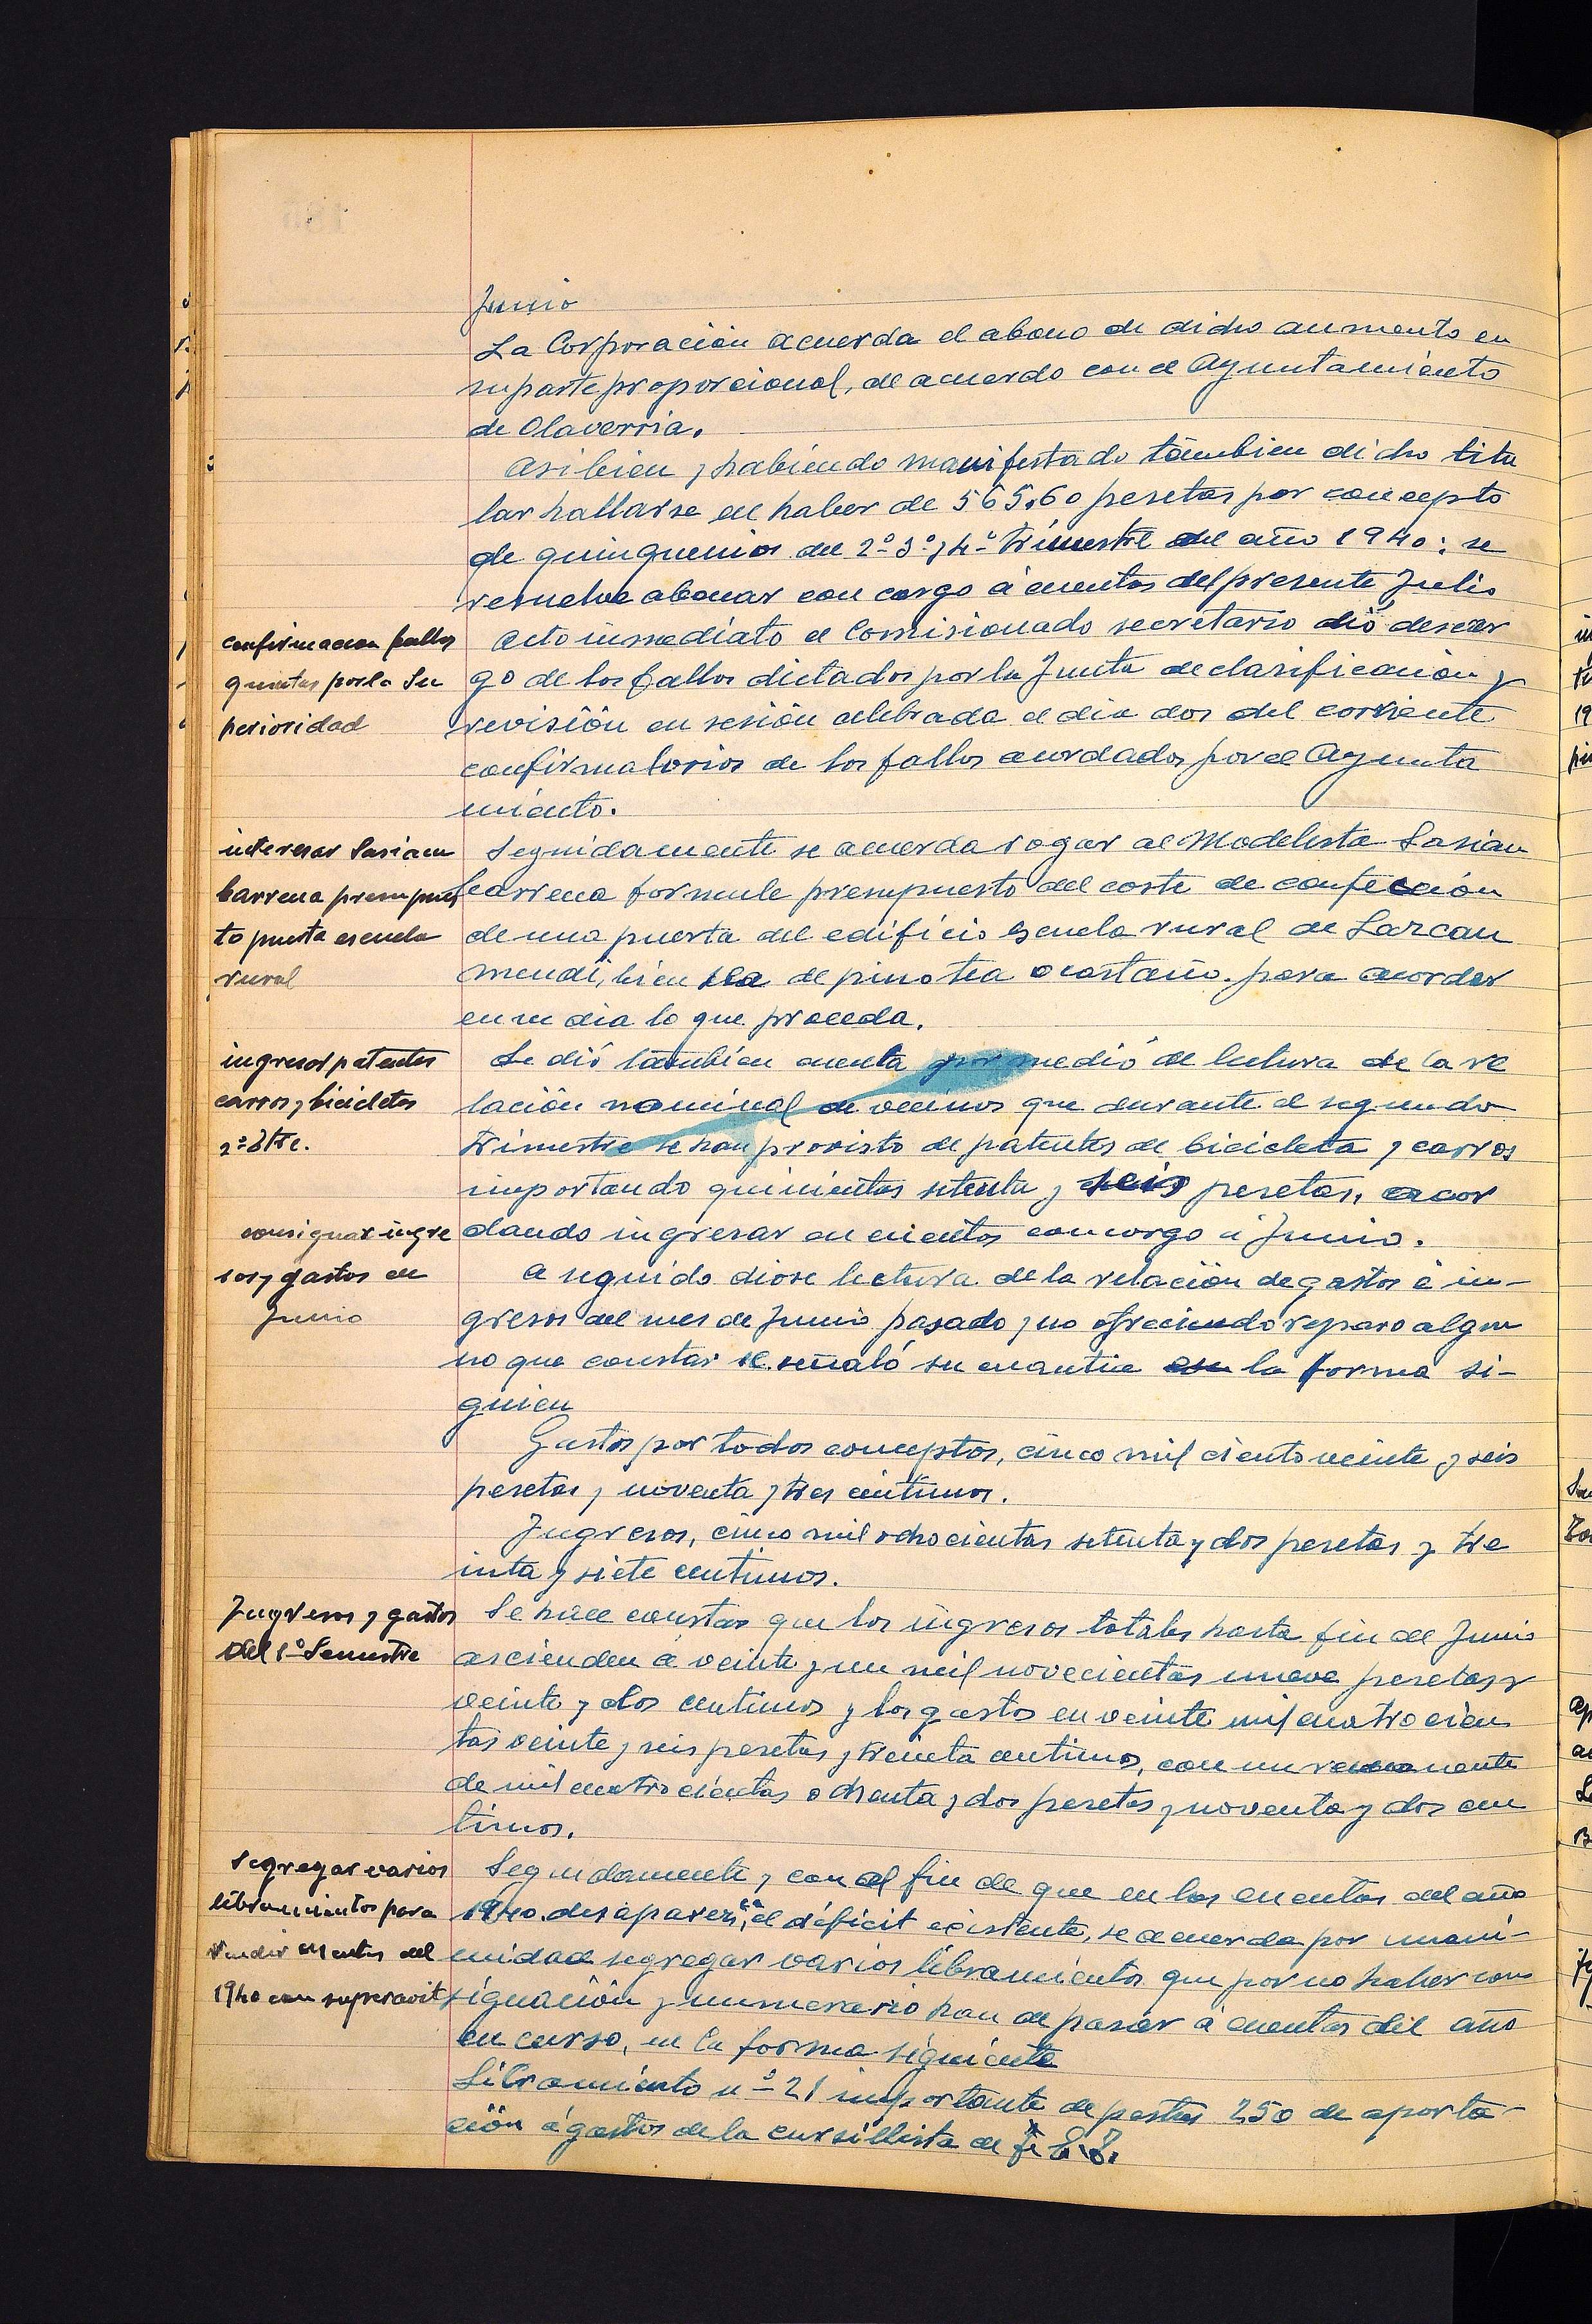 Junio
La Corporación acuerda el abono de dicho aumento en
su parte proporcional, de acuerdo con el Ayuntamiento
de Olaverria.
Asi bien y habiendo manifestado tambien dicho titu
lar hallarse en haber de 565,60 pesetas por concepto
de quinquenios del 2º 3º y 4º trimestre del año 1940: se
resuelve abonar con cargo á cuentas del presente Julio
confirmacion fallos
quintas por la Su
perioridad
Acto inmediato el Comisionado secretario dió descar
go de los fallos dictados por la Junta de clasificación y
revisión en sesión celebrada el dia dos del corriente
confirmatorios de los fallos acordados por el Ayunta
miento.
interesar Sasiam
barrena presupues
to puerta escuela
rural
Seguidamente se acuerda rogar al Modelista Sasiam
barrena formule presupuesto del coste de confección
de una puerta del edificio Escuela rural de Lazcau
mendi, bien sea de pino tea o castaño. para acordar
en su dia lo que proceda.
ingresos patentes
carros y bicicletas
2º Stre.
Se dió tambien cuenta por medio de lectura de la re
lación nominal de vecinos que durante el segundo
trimestre se han provisto de patentes de bicicleta y carros
importando quinientas setenta y seis pesetas, acor
dando ingresar en cuentas con cargo a Junio.
consignar ingre
sos y gastos en
Junio
A seguido diose lectura de la relación de gastos é in-
gresos del mes de Junio pasado y no ofreciendo reparo algu
no que constar se señaló su cuantia en la forma si-
guien
Gastos por todos conceptos, cinco mil ciento veinte y seis
pesetas y noventa y tres centimos.
Ingresos, cinco mil ochocientas setenta y dos pesetas y tre
inta y siete centimos.
Ingresos y gastos
del 1º Semestre
Se hace constar que los ingresos totales hasta fin de Junio
ascienden á veinte y un mil novecientas nueve pesetas y
veinte y dos centimos y los gastos en veinte mil cuatro cien
tas veinte y seis pesetas y treinta centimos, con un remanente
de mil cuatrocientas ochenta y dos pesetas y noventa y dos cen
timos.
segregar varios
libramientos para
rendir cuentas del
1940 con superavit
Seguidamente y con el fin de que en las cuentas del año
1940. desaparezca el déficit existente, se acuerda por unani-
midad segregar varios libramientos que por no haber con
signación y numerario han de pasar á cuentas del año
en curso, en la forma siguiente
Libramiento nº 21 importante de pesetas 250 de aporta-
ción á gastos de la cursillista de